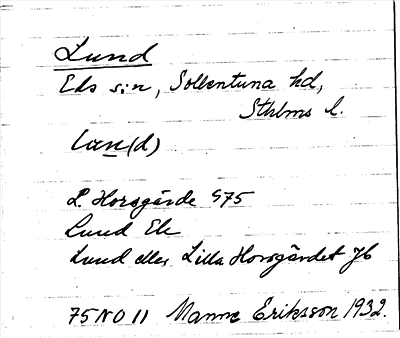 Lund
Eds sn, Sollentuna hd,
Sthlms l.
lun(d)
L. Horsgärde G75
Lund Ek
Lund eller Lilla Horsgärdet Jb
75 NO 11 Manne Eriksson 1932.